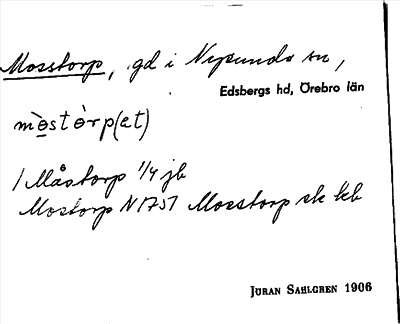 Mosstorp, gd i Nysunds sn,
Edsbergs hd, Örebro län
mòstòrp(et)
/ Måstorp 1/4 jb
Mostorp N 1757 Mosstorp sk kb
JÖRAN SAHLGREN 1906